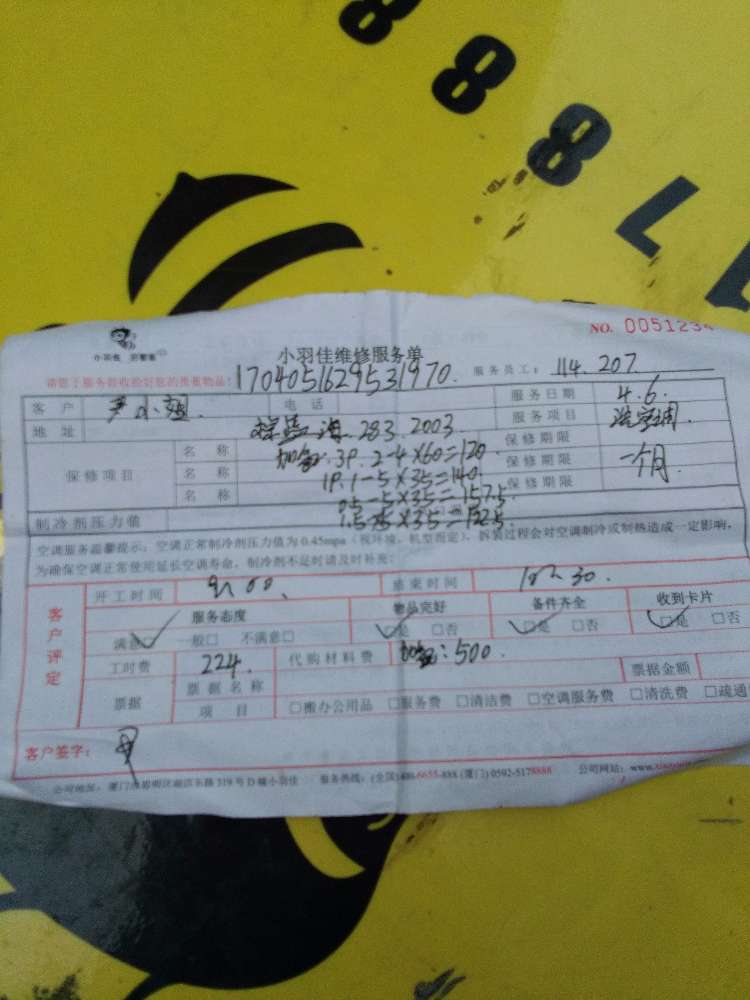 888L
NO. 0051234
小羽佳 別管家
小羽佳维修服务单
请您于服务验收后封底的贵重物品: 1704051629531970. 服务员工: 114. 207.
客户 尹小姐. 电话 服务日期 4.6
地址 283. 2003 服务项目
保修项目 名称 加氟. 3P. 2-4×60=120 保修期限 一个月.
名称 1P. 1-5×35=140. 保修期限
名称 0.5-5×35=157.5 保修期限
制冷剂压力值 1.5 ×35=
空调服务温馨提示: 空调正常制冷剂压力值为0.45mpa (视环境、机型而定), 拆装过程会对空调制冷或制热造成一定影响,
为确保空调正常使用延长空调寿命, 制冷剂不足时请及时补充:
客户评定
开工时间 9:00 结束时间 10:30.
服务态度 物品完好 备件齐全 收到卡片
满意□ 一般□ 不满意□ □是 □否 □是 □否 □是 □否
工时费 224. 代购材料费 加氟: 500. 票据金额
票据 票据名称
项目 □搬办公用品 □服务费 □清洁费 □空调服务费 □清洗费 □疏通
客户签字: 尹
公司地址: 厦门市思明区湖滨东路319号D幢小羽佳 服务热线: (全国)400-6655-888 (厦门) 0592-5178888 公司网站: www.